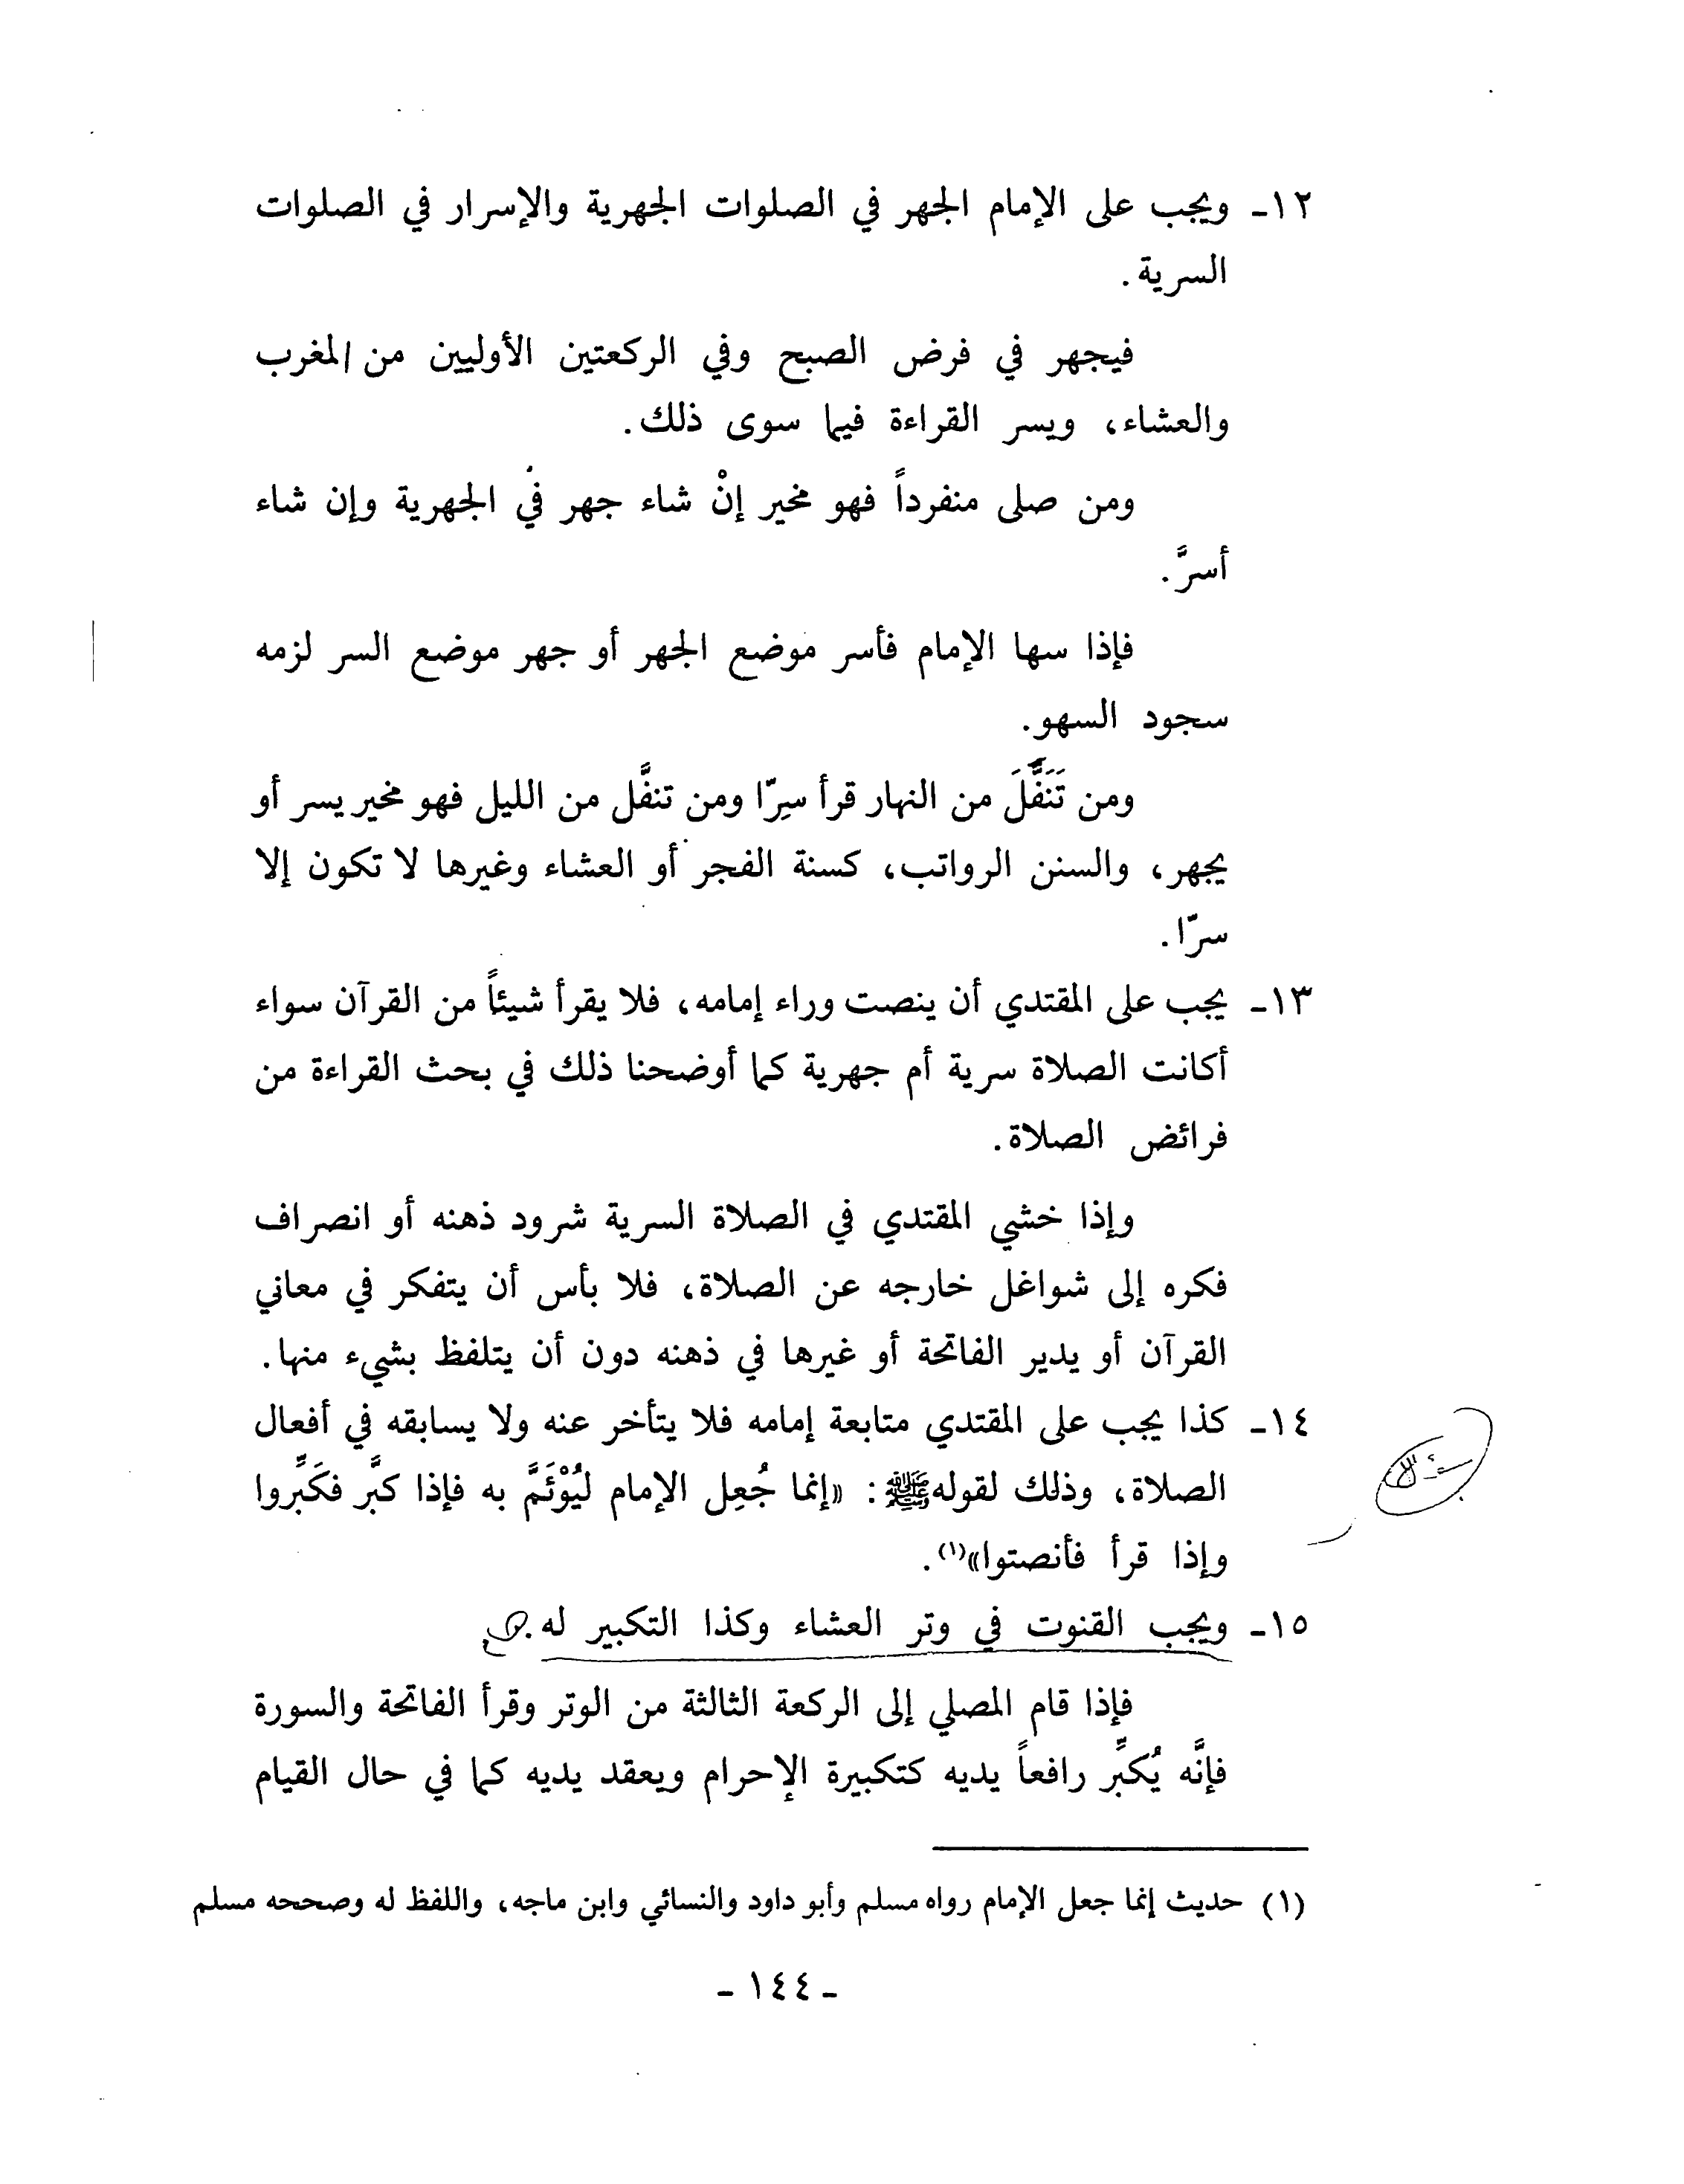 ١٢ـ ويجب على الإمام الجهر في الصلوات الجهرية والإسرار في الصلوات
السرية.
فيجهر في فرض الصبح وفي الركعتين الأوليين من المغرب
والعشاء، ويسر القراءة فيما سوى ذلك.
ومن صلى منفرداً فهو مخير إنْ شاء جهر في الجهرية وإن شاء
أسرَّ.
فإذا سها الإمام فأسر موضع الجهر أو جهر موضع السر لزمه
سجود السهو.
ومن تَنَفَّلَ من النهار قرأ سِرّا ومن تنفَّل من الليل فهو مخير يسر أو
يجهر، والسنن الرواتب، كسنة الفجر أو العشاء وغيرها لا تكون إلا
سرّا.
١٣ـ يجب على المقتدي أن ينصت وراء إمامه، فلا يقرأ شيئاً من القرآن سواء
أكانت الصلاة سرية أم جهرية كما أوضحنا ذلك في بحث القراءة من
فرائض الصلاة.
وإذا خشي المقتدي في الصلاة السرية شرود ذهنه أو انصراف
فكره إلى شواغل خارجه عن الصلاة، فلا بأس أن يتفكر في معاني
القرآن أو يدير الفاتحة أو غيرها في ذهنه دون أن يتلفظ بشيء منها.
١٤ـ كذا يجب على المقتدي متابعة إمامه فلا يتأخر عنه ولا يسابقه في أفعال
الصلاة، وذلك لقوله ﷺ: «إنما جُعِل الإمام ليُؤْتَمَّ به فإذا كبَّر فكَبِّروا
وإذا قرأ فأنصتوا»(١).
١٥ـ ويجب القنوت في وتر العشاء وكذا التكبير له.
فإذا قام المصلي إلى الركعة الثالثة من الوتر وقرأ الفاتحة والسورة
فإنَّه يُكبِّر رافعاً يديه كتكبيرة الإحرام ويعقد يديه كما في حال القيام
(١) حديث إنما جعل الإمام رواه مسلم وأبو داود والنسائي وابن ماجه، واللفظ له وصححه مسلم
ـ ١٤٤ ـ